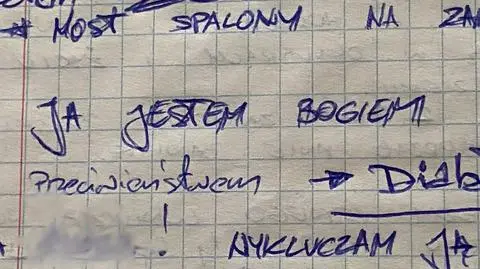 MOST SPALONY NA ZA
JA JESTEM BOGIEM
Przeciwieństwem → Diab
!
WYKLUCZAM JĄ